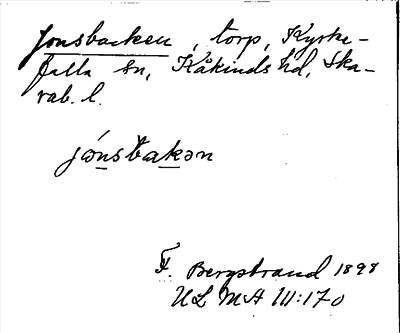 Jonsbacken, torp, Kyrke-
falla sn, Kåkinds hd, Ska-
rab. l.
jónsbakən
F. Bergstrand 1898
ULMA 111:170